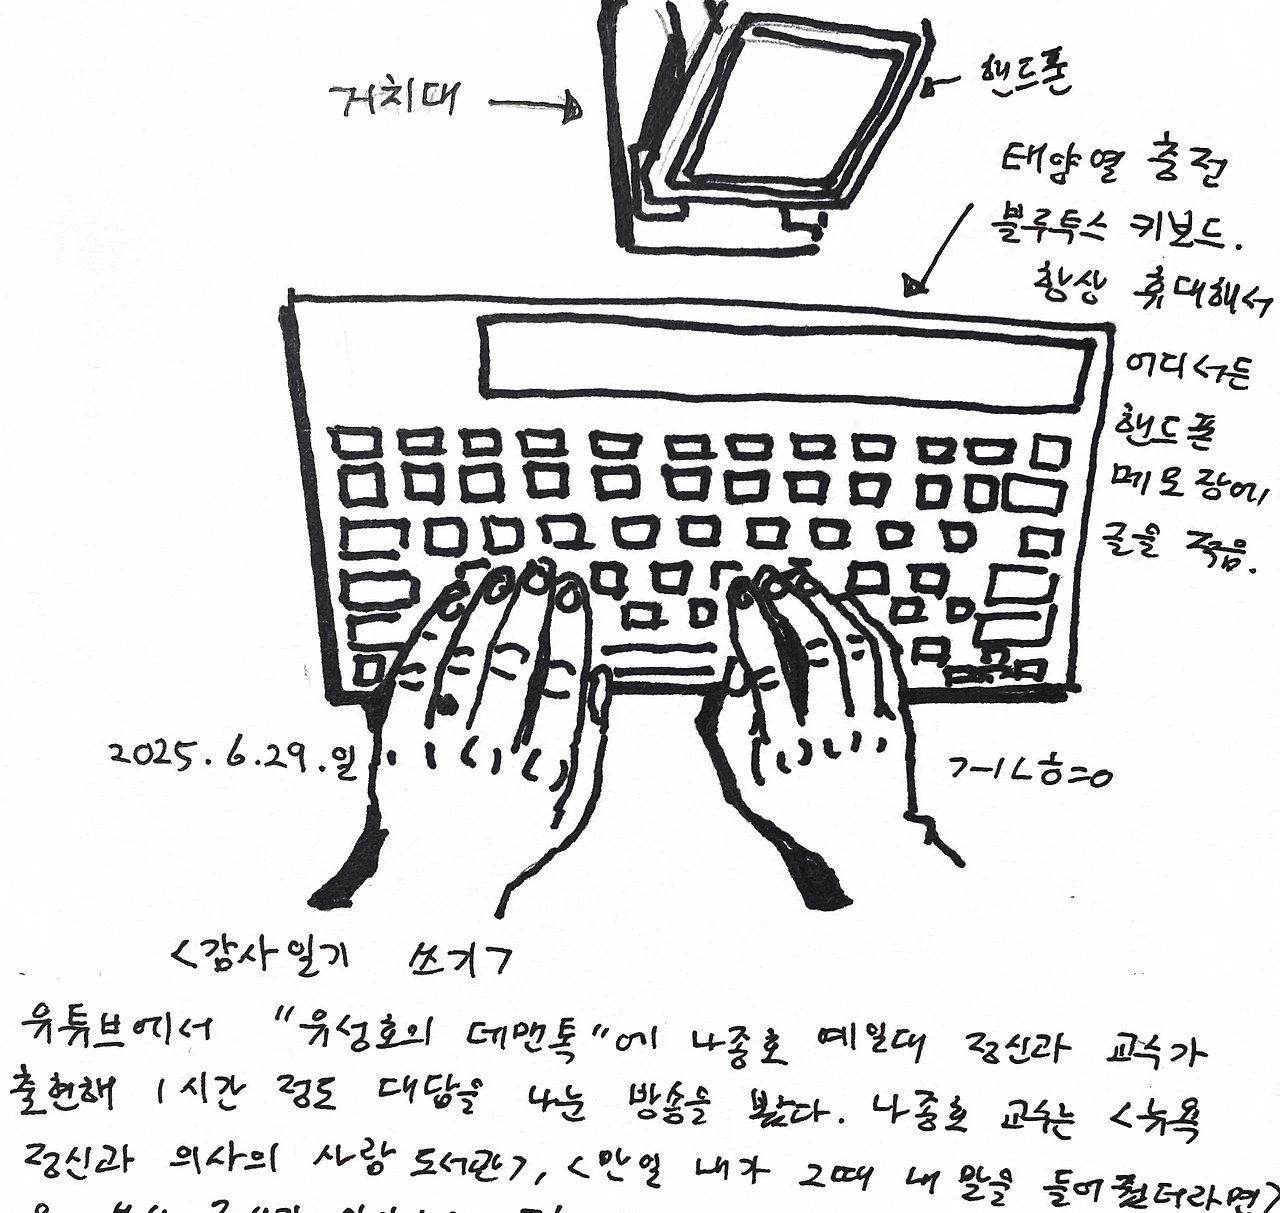 거치대
핸드폰
태양열 충전
블루투스 키보드.
항상 휴대해서
어디서든
핸드폰
메모장에
글을 적음.
2025.6.29.일
<감사일기 쓰기>
유튜브에서 "유성호의 데맨톡"에 나종호 예일대 정신과 교수가
출현해 1시간 정도 대담을 나눈 방송을 봤다. 나종호 교수는 <뉴욕
정신과 의사의 사람 도서관>, <만일 내가 그때 내 말을 들어줬더라면>